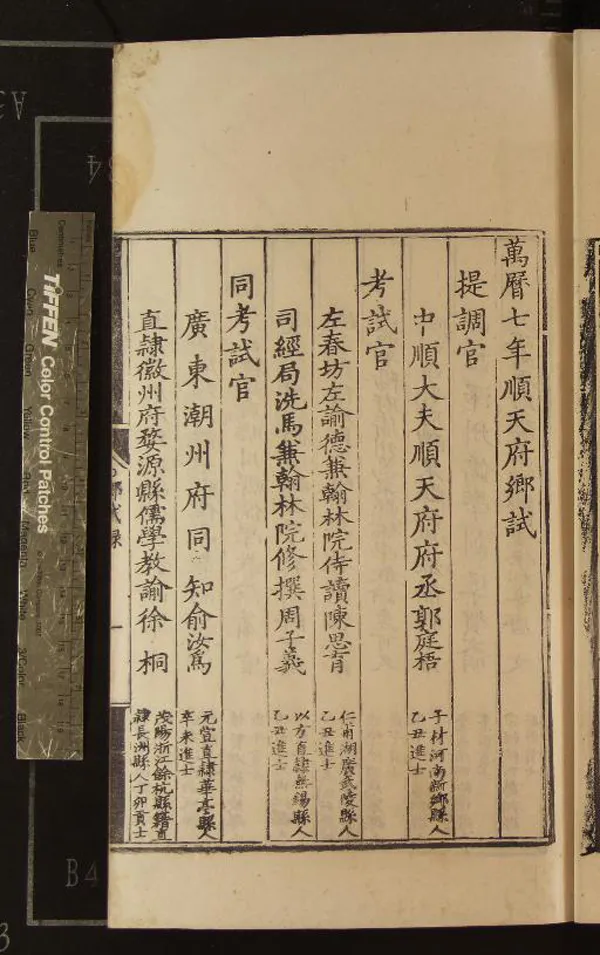 萬曆七年順天府鄉試
提調官
中順大夫順天府府丞郭庭梧
子材河南新鄉縣人
乙丑進士
考試官
左春坊左諭德兼翰林院侍讀陳思育
仁甫湖廣武陵縣人
乙丑進士
司經局洗馬兼翰林院修撰周子義
以方直隸無錫縣人
乙丑進士
同考試官
廣東潮州府同知俞汝為
元宣直隸華亭縣人
辛未進士
直隸徽州府婺源縣儒學教諭徐桐
茂陽浙江餘杭縣籍直
隸長洲縣人丁卯貢士
鄉試錄
TIFFEN Color Control Patches
Centimetres
Blue
Green
Yellow
Magenta
White
3/Color
Black
B4